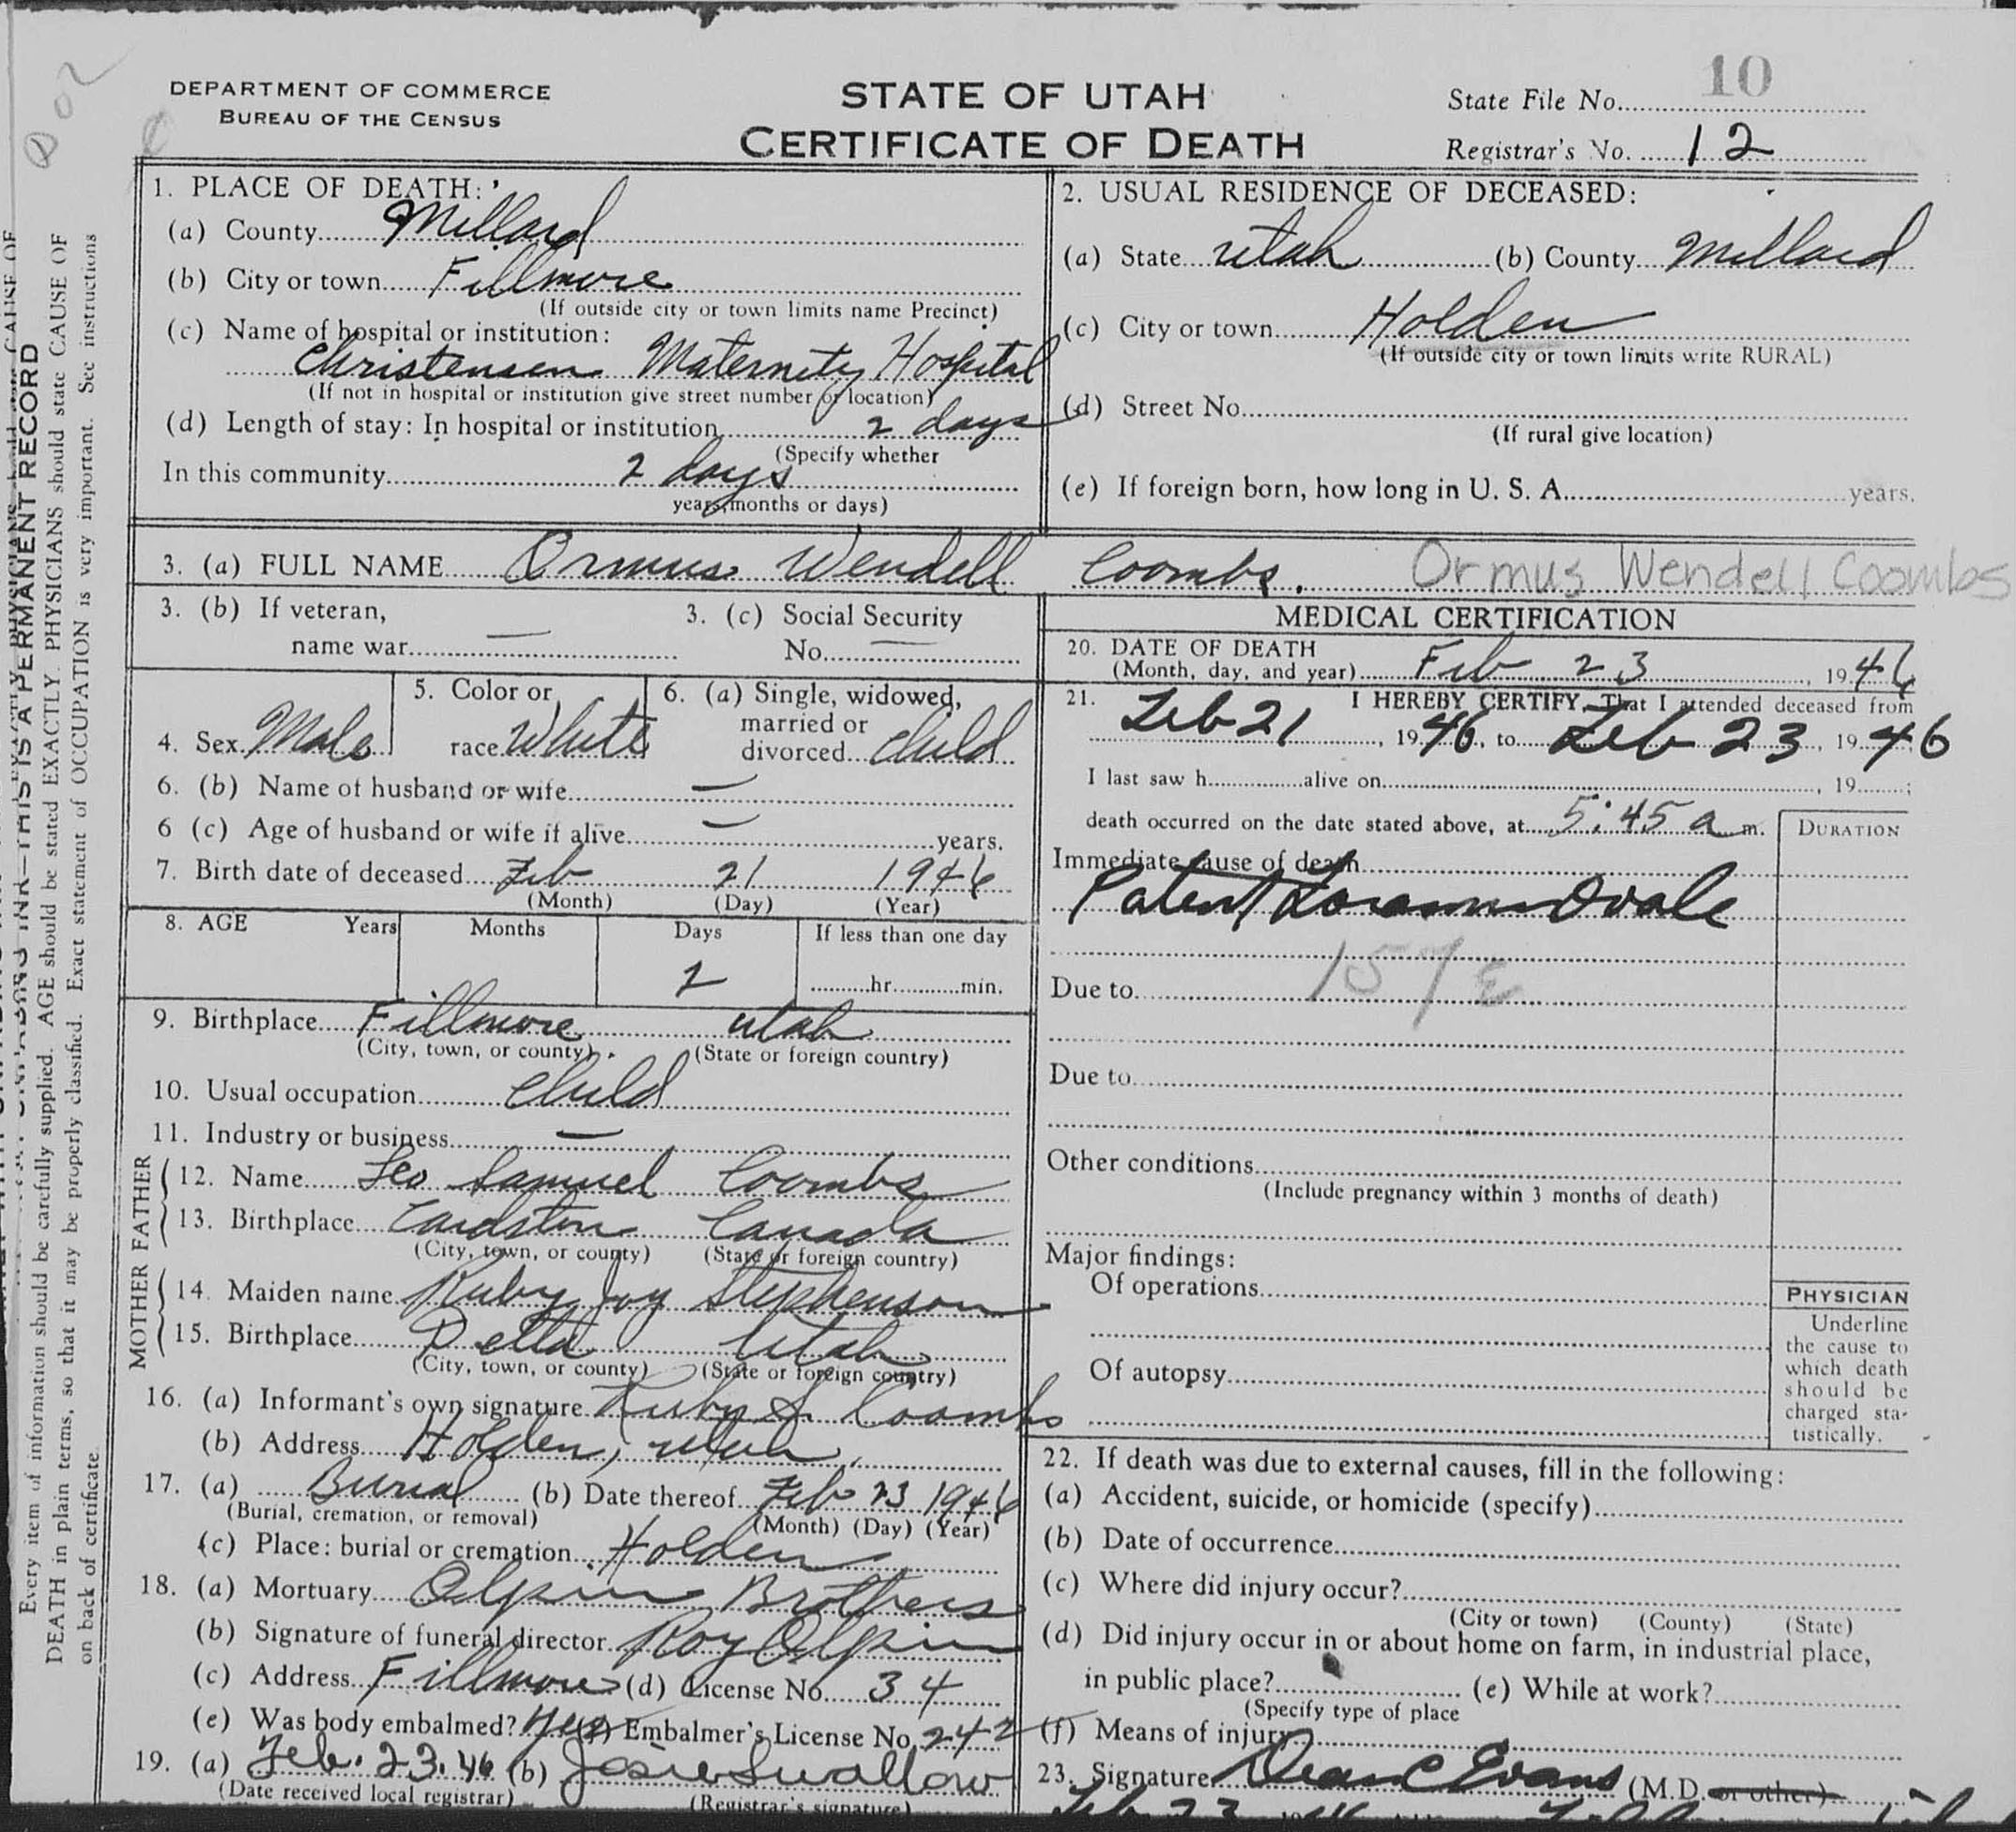 DEPARTMENT OF COMMERCE
BUREAU OF THE CENSUS
STATE OF UTAH
CERTIFICATE OF DEATH
State File No. 10
Registrar's No. 12
1. PLACE OF DEATH:
(a) County Millard
(b) City or town Fillmore
(If outside city or town limits name Precinct)
(c) Name of hospital or institution:
Christensen Maternity Hospital
(If not in hospital or institution give street number or location)
(d) Length of stay: In hospital or institution 2 days
(Specify whether
In this community 2 days
years, months or days)
2. USUAL RESIDENCE OF DECEASED:
(a) State Utah (b) County Millard
(c) City or town Holden
(If outside city or town limits write RURAL)
(d) Street No.
(If rural give location)
(e) If foreign born, how long in U. S. A. years.
3. (a) FULL NAME Ormus Wendell Coombs. Ormus Wendell Coombs
3. (b) If veteran,
name war —
3. (c) Social Security
No. —
4. Sex Male
5. Color or
race White
6. (a) Single, widowed,
married or
divorced child
6. (b) Name of husband or wife —
6 (c) Age of husband or wife if alive — years.
7. Birth date of deceased Feb 21 1946
(Month) (Day) (Year)
8. AGE Years Months Days If less than one day
2 hr. min.
9. Birthplace Fillmore Utah
(City, town, or county) (State or foreign country)
10. Usual occupation Child
11. Industry or business —
FATHER
12. Name Leo Samuel Coombs
13. Birthplace Cardston Canada
(City, town, or county) (State or foreign country)
MOTHER
14. Maiden name Ruby Joy Stephenson
15. Birthplace Delta Utah
(City, town, or county) (State or foreign country)
16. (a) Informant's own signature Ruby S. Coombs
(b) Address Holden, Utah
17. (a) Burial (b) Date thereof Feb 23 1946
(Burial, cremation, or removal) (Month) (Day) (Year)
(c) Place: burial or cremation Holden
18. (a) Mortuary Olpin Brothers
(b) Signature of funeral director Roy Olpin
(c) Address Fillmore (d) License No. 34
(e) Was body embalmed? Yes (f) Embalmer's License No. 242
19. (a) Feb. 23. 46 (b) Josie Swallow
(Date received local registrar) (Registrar's signature)
MEDICAL CERTIFICATION
20. DATE OF DEATH
(Month, day, and year) Feb 23, 1946
21. I HEREBY CERTIFY, That I attended deceased from
Feb 21, 1946, to Feb 23, 1946
I last saw h alive on , 19 ;
death occurred on the date stated above, at 5:45 a m.
DURATION
Immediate cause of death
Patent Foramen Ovale
157 E
Due to
Due to
Other conditions
(Include pregnancy within 3 months of death)
Major findings:
Of operations
Of autopsy
PHYSICIAN
Underline
the cause to
which death
should be
charged sta-
tistically.
22. If death was due to external causes, fill in the following:
(a) Accident, suicide, or homicide (specify)
(b) Date of occurrence
(c) Where did injury occur?
(City or town) (County) (State)
(d) Did injury occur in or about home on farm, in industrial place,
in public place? (e) While at work?
(Specify type of place
(f) Means of injury
23. Signature Dean C Evans (M.D. or other)
Feb 23
THIS IS A PERMANENT RECORD
Every item of information should be carefully supplied. AGE should be stated EXACTLY. PHYSICIANS should state CAUSE OF
DEATH in plain terms, so that it may be properly classified. Exact statement of OCCUPATION is very important. See instructions
on back of certificate.